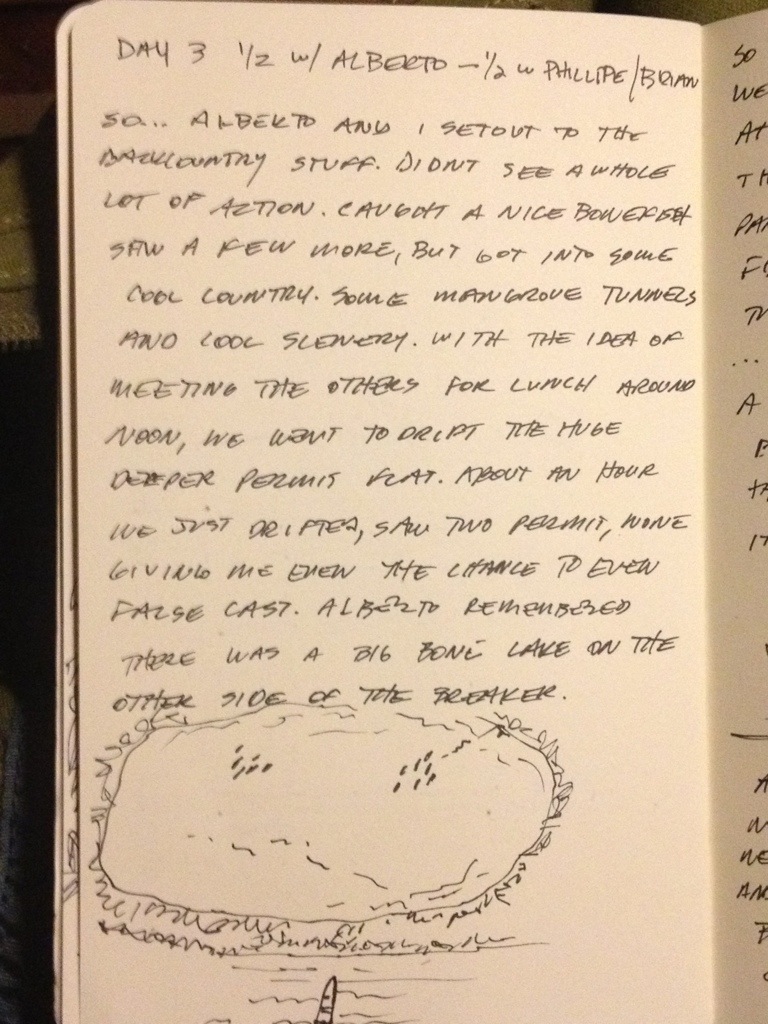 DAY 3 1/2 W/ ALBERTO - 1/2 W PHILLIPE/BRIAN
SO... ALBERTO AND I SETOUT TO THE
BACKCOUNTRY STUFF. DIDNT SEE A WHOLE
LOT OF ACTION. CAUGHT A NICE BONEFISH
SAW A FEW MORE, BUT GOT INTO SOME
COOL COUNTRY. SOME MANGROVE TUNNELS
AND COOL SCENERY. WITH THE IDEA OF
MEETING THE OTHERS FOR LUNCH AROUND
NOON, WE WENT TO DRIFT THE HUGE
DEEPER PERMIT FLAT. ABOUT AN HOUR
WE JUST DRIFTED, SAW TWO PERMIT, NONE
GIVING ME EVEN THE CHANCE TO EVEN
FALSE CAST. ALBERTO REMEMBERED
THERE WAS A BIG BONE LAKE ON THE
OTHER SIDE OF THE BREAKER.
SO
WE
A